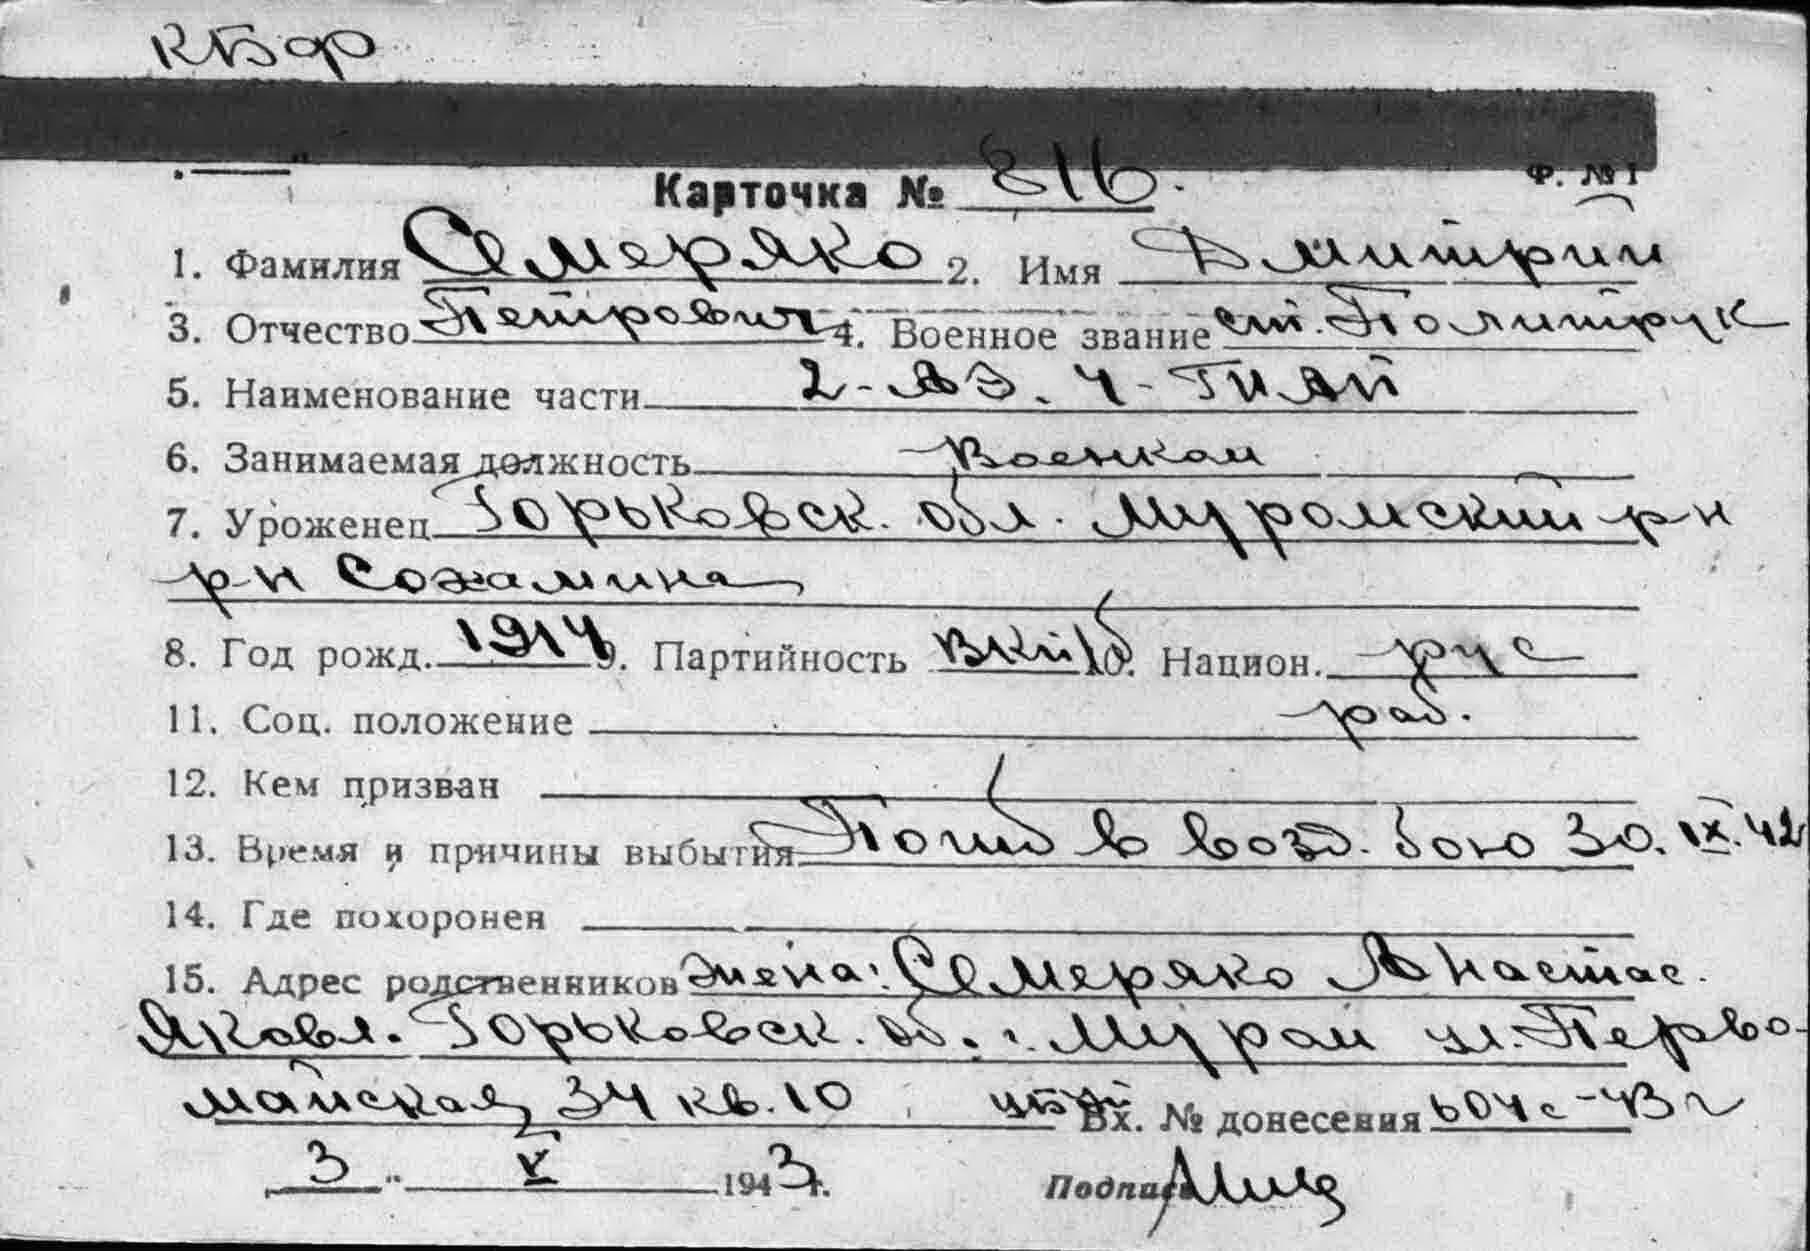 КБФ
Карточка № 816. Ф. № 1
1. Фамилия Семеряко 2. Имя Дмитрий
3. Отчество Петрович 4. Военное звание ст. Политрук
5. Наименование части 2-АЭ. 4-ГИАП
6. Занимаемая должность Военком
7. Уроженец Горьковск. обл. Муромский р-н
р-н
8. Год рожд. 1914 9. Партийность ВКПб 10. Национ. рус
11. Соц. положение раб.
12. Кем призван
13. Время и причины выбытия Погиб в возд. бою 30.IX.42
14. Где похоронен
15. Адрес родственников жена: Семеряко Анастас.
Яковл. Горьковск. об. г. Муром ул. Перво-
майская 34 кв. 10 Вх. № донесения 604с-43г
3 " V 1943г. Подпись